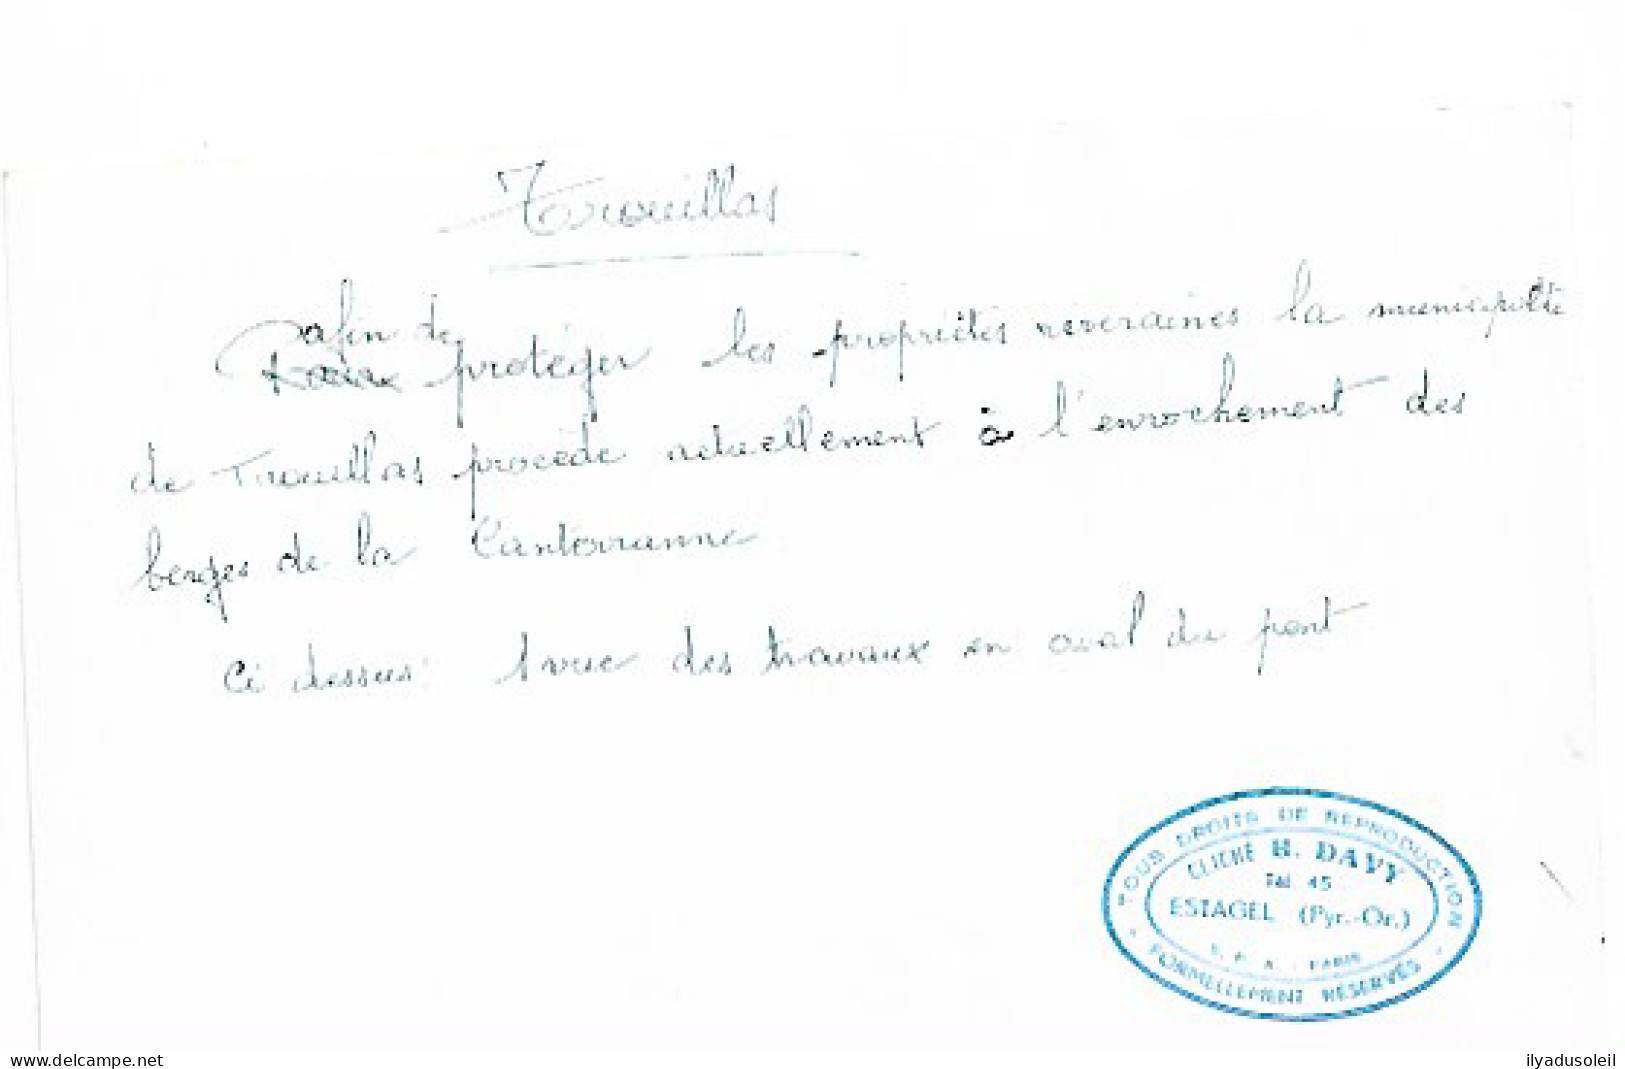 Trouillas
afin de
protéger les propriétés riveraines la municipalité
de Trouillas procède actuellement à l'enrochement des
berges de la Canterranne
Ci dessus: 1 vue des travaux en aval du pont
TOUS DROITS DE REPRODUCTION
CLICHÉ H. DAVY
Tél. 45
ESTAGEL (Pyr.-Or.)
PARIS
FORMELLEMENT RÉSERVÉS
www.delcampe.net
ilyadusoleil